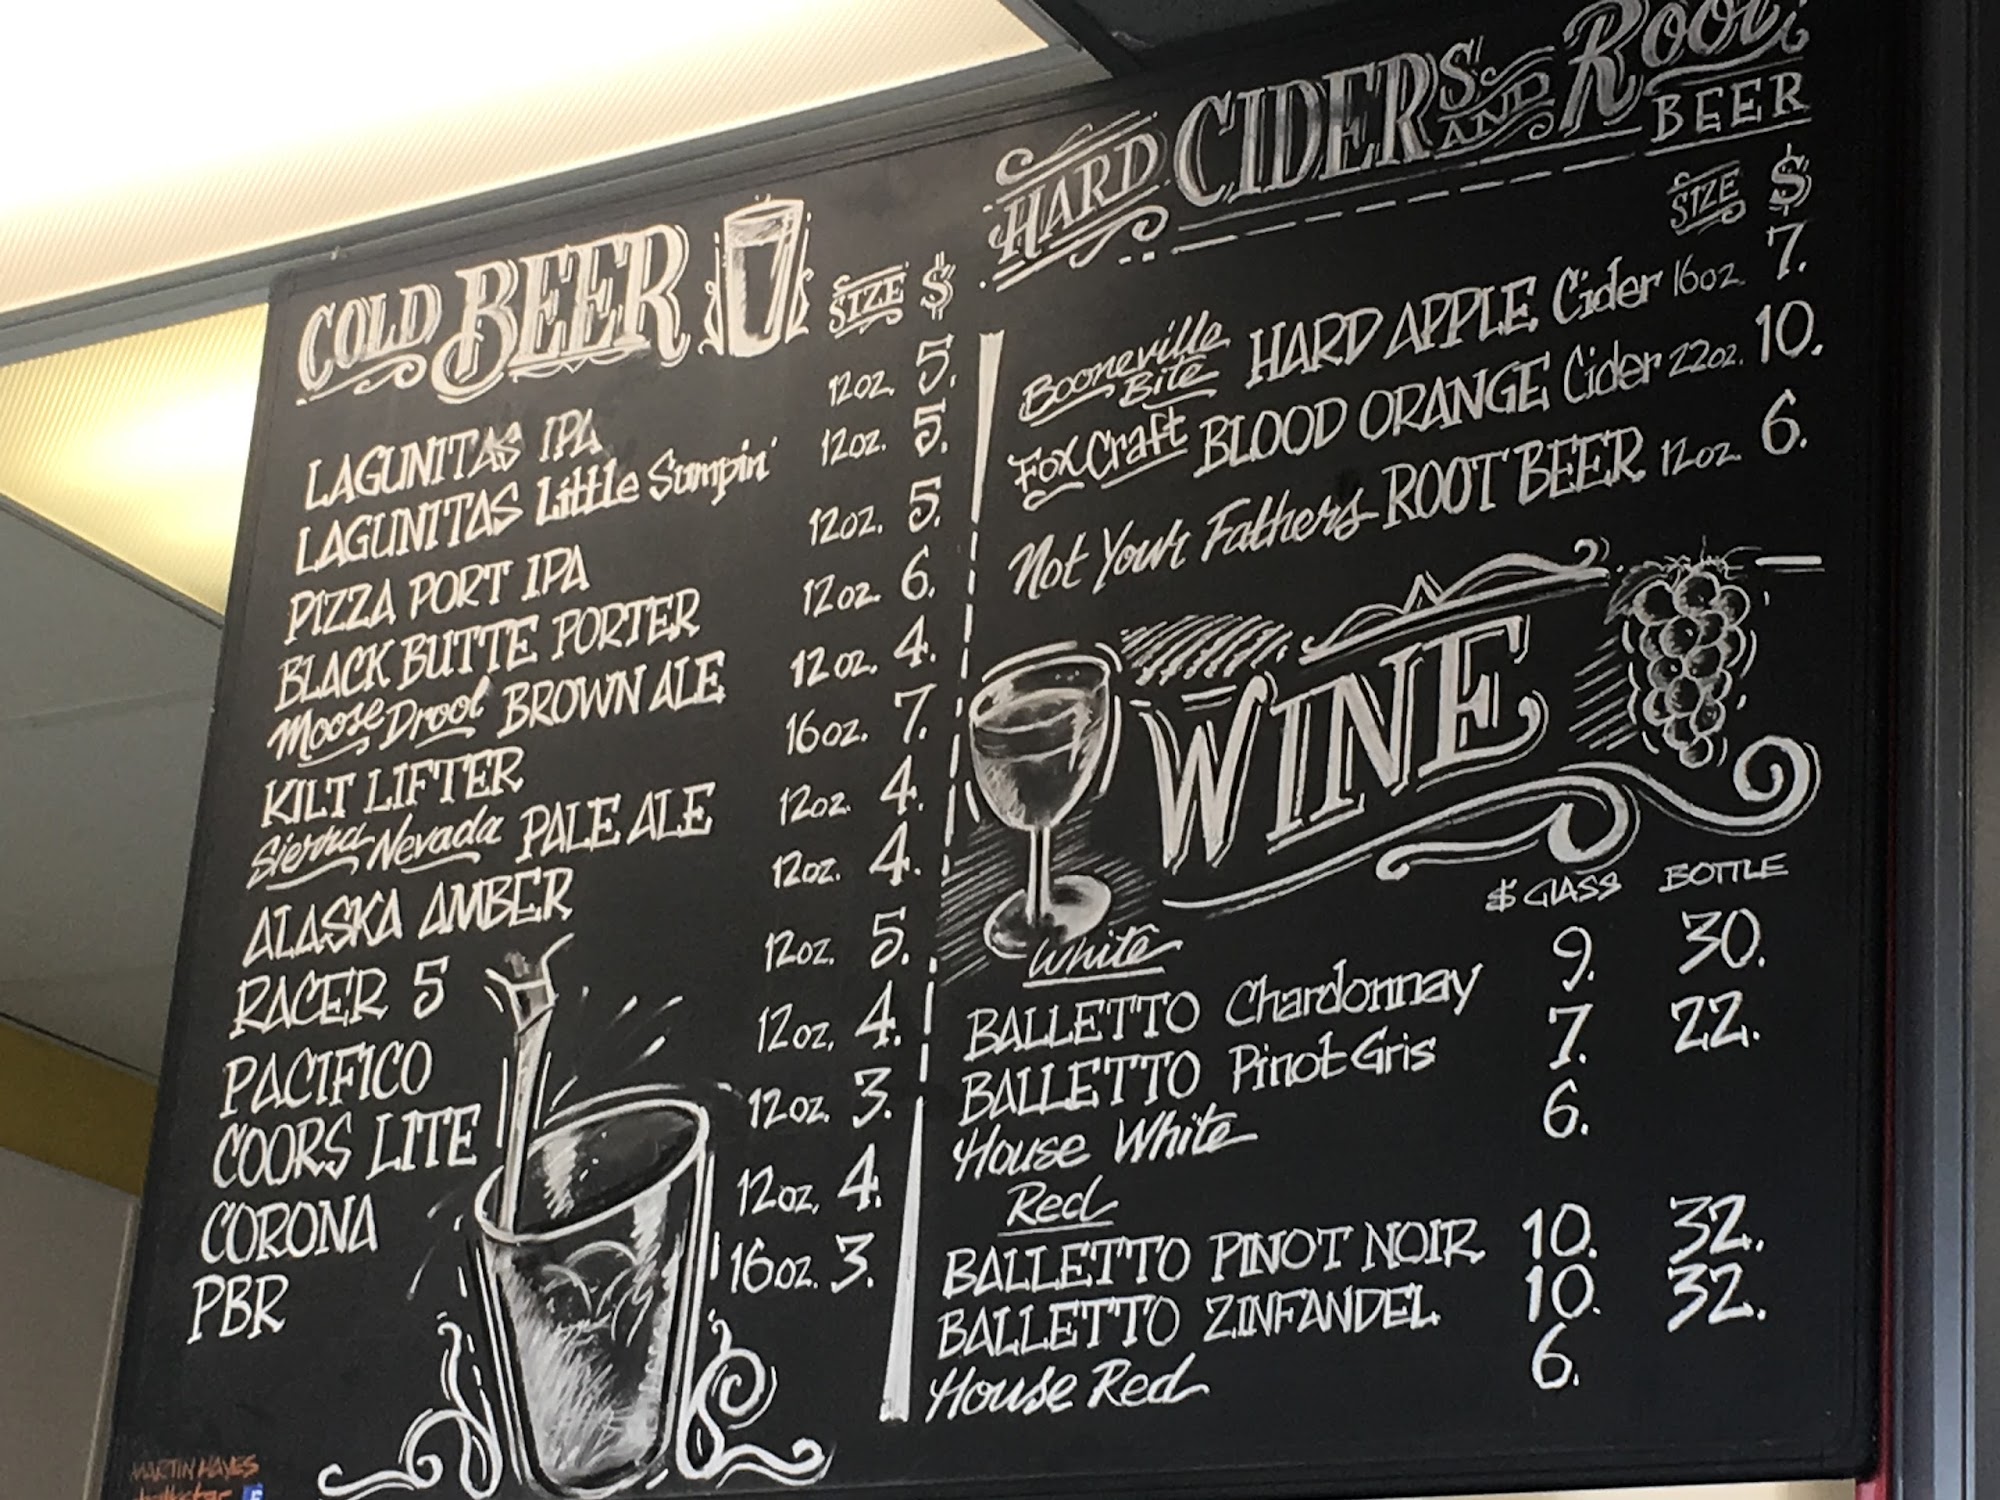 COLD BEER SIZE $
LAGUNITAS IPA 12oz. 5.
LAGUNITAS Little Sumpin' 12oz. 5.
PIZZA PORT IPA 12oz. 5.
BLACK BUTTE PORTER 12oz. 6.
Moose Drool BROWN ALE 12oz. 4.
KILT LIFTER 16oz. 7.
Sierra Nevada PALE ALE 12oz. 4.
ALASKA AMBER 12oz. 4.
RACER 5 12oz. 5.
PACIFICO 12oz. 4.
COORS LITE 12oz. 3.
CORONA 12oz. 4.
PBR 16oz. 3.
MARTIN HAYES
HARD CIDERS AND Root BEER
SIZE $
Booneville Bite HARD APPLE Cider 16oz. 7.
Fox Craft BLOOD ORANGE Cider 22oz. 10.
Not Your Fathers ROOT BEER 12oz. 6.
WINE
$ GLASS BOTTLE
White
BALLETTO Chardonnay 9. 30.
BALLETTO Pinot Gris 7. 22.
House White 6.
Red
BALLETTO PINOT NOIR 10. 32.
BALLETTO ZINFANDEL 10. 32.
House Red 6.